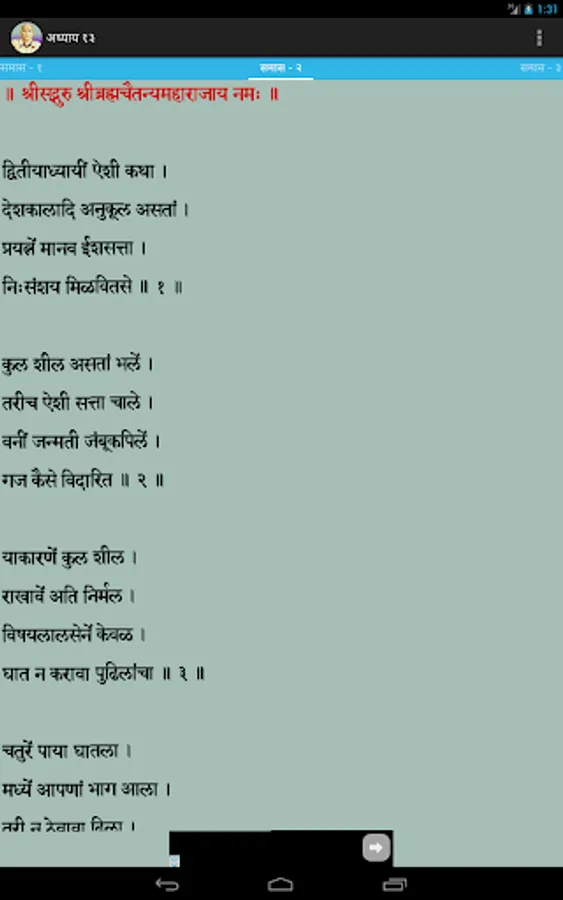 1:31
अध्याय १३
समास - १
समास - २
समास - ३
॥ श्रीसद्गुरु श्रीब्रह्मचैतन्यमहाराजाय नमः ॥
द्वितीयाध्यायीं ऐशी कथा ।
देशकालादि अनुकूल असतां ।
प्रयत्नें मानव ईशसत्ता ।
निःसंशय मिळवितसे ॥ १ ॥
कुल शील असतां भलें ।
तरीच ऐशी सत्ता चाले ।
वनीं जन्मती जंबूकपिलें ।
गज कैसे विदारित ॥ २ ॥
याकारणें कुल शील ।
राखावें अति निर्मल ।
विषयलालसेनें केवळ ।
घात न करावा पुढिलांचा ॥ ३ ॥
चतुरें पाया घातला ।
मध्यें आपणां भाग आला ।
तरी न ठेवावा ढिला ।